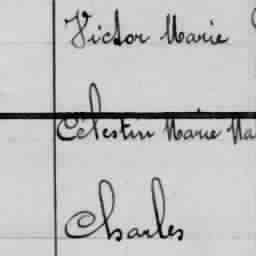 Victor Marie
Célestin Marie Ma
Charles